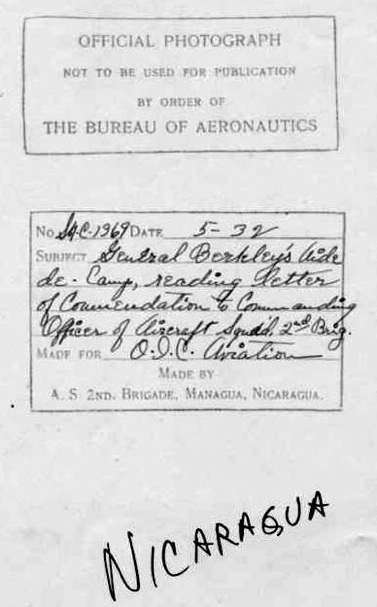 OFFICIAL PHOTOGRAPH
NOT TO BE USED FOR PUBLICATION
BY ORDER OF
THE BUREAU OF AERONAUTICS
No. DATE 5-32
SUBJECT General Berkley's Aide
de-Camp, reading letter
of Commendation to Commanding
Officer of Aircraft Squd'n. 2nd Brig.
MADE FOR O.I.C. Aviation
MADE BY
A. S 2ND. BRIGADE, MANAGUA, NICARAGUA.
NICARAGUA